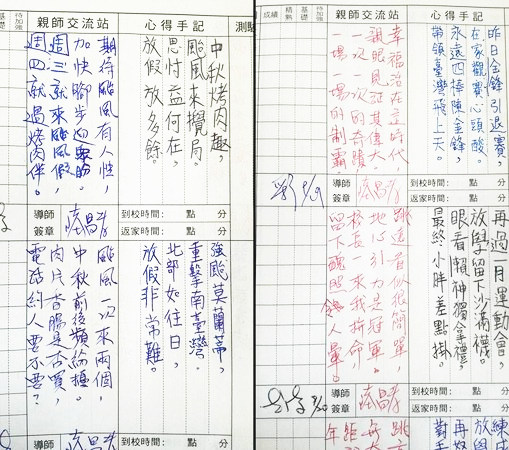 親師交流站 心得手記 測驗
中秋烤肉趣，
颱風來攪局。
思忖益何在，
放假放多餘。
期待颱風有人性，
加快腳步迎眾盼。
週三就來颱風假，
週四就遇烤肉伴。
導師簽章
到校時間： 點 分
返家時間： 點 分
強颱莫蘭蒂，
重擊南臺灣。
北部如往日，
放假非常難。
颱風一次來兩個，
中秋前後頻
肉片香腸是否買，
電話約人要不要？
導師
到校時間： 點 分
成績
基礎
待加強
親師交流站 心得手記
昨日金鋒引退賽，
在家觀賽心頭酸。
永遠四棒陳金鋒，
帶領臺灣飛上天。
幸福活在這時代，
親眼見証其偉大。
一次一次的奇蹟，
一場一場的制霸。
導師簽章
到校時間： 點 分
返家時間： 點 分
再過一月運動會，
放學留下沙滿襪。
眼看賴神獨拿禮，
最終小胖差點掛。
跳遠看似很簡單，
地心引力是冠軍。
校長一來我拚命，
留下醜照給人暈。
導師簽章
到校時間： 點 分
返家時間： 點 分